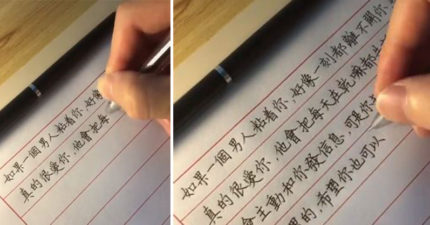 如果一個男人粘着你,好像
真的很愛你,他會把每
如果一個男人粘着你,好像一刻都離不開你,
真的很愛你,他會把每天在就
會主動和你發信息,可是你
的,希望你也可以